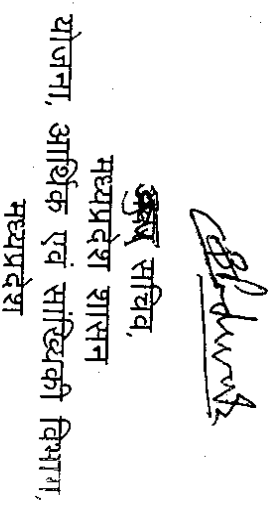 सचिव,
मध्यप्रदेश शासन
योजना, आर्थिक एवं सांख्यिकी विभाग,
मध्यप्रदेश